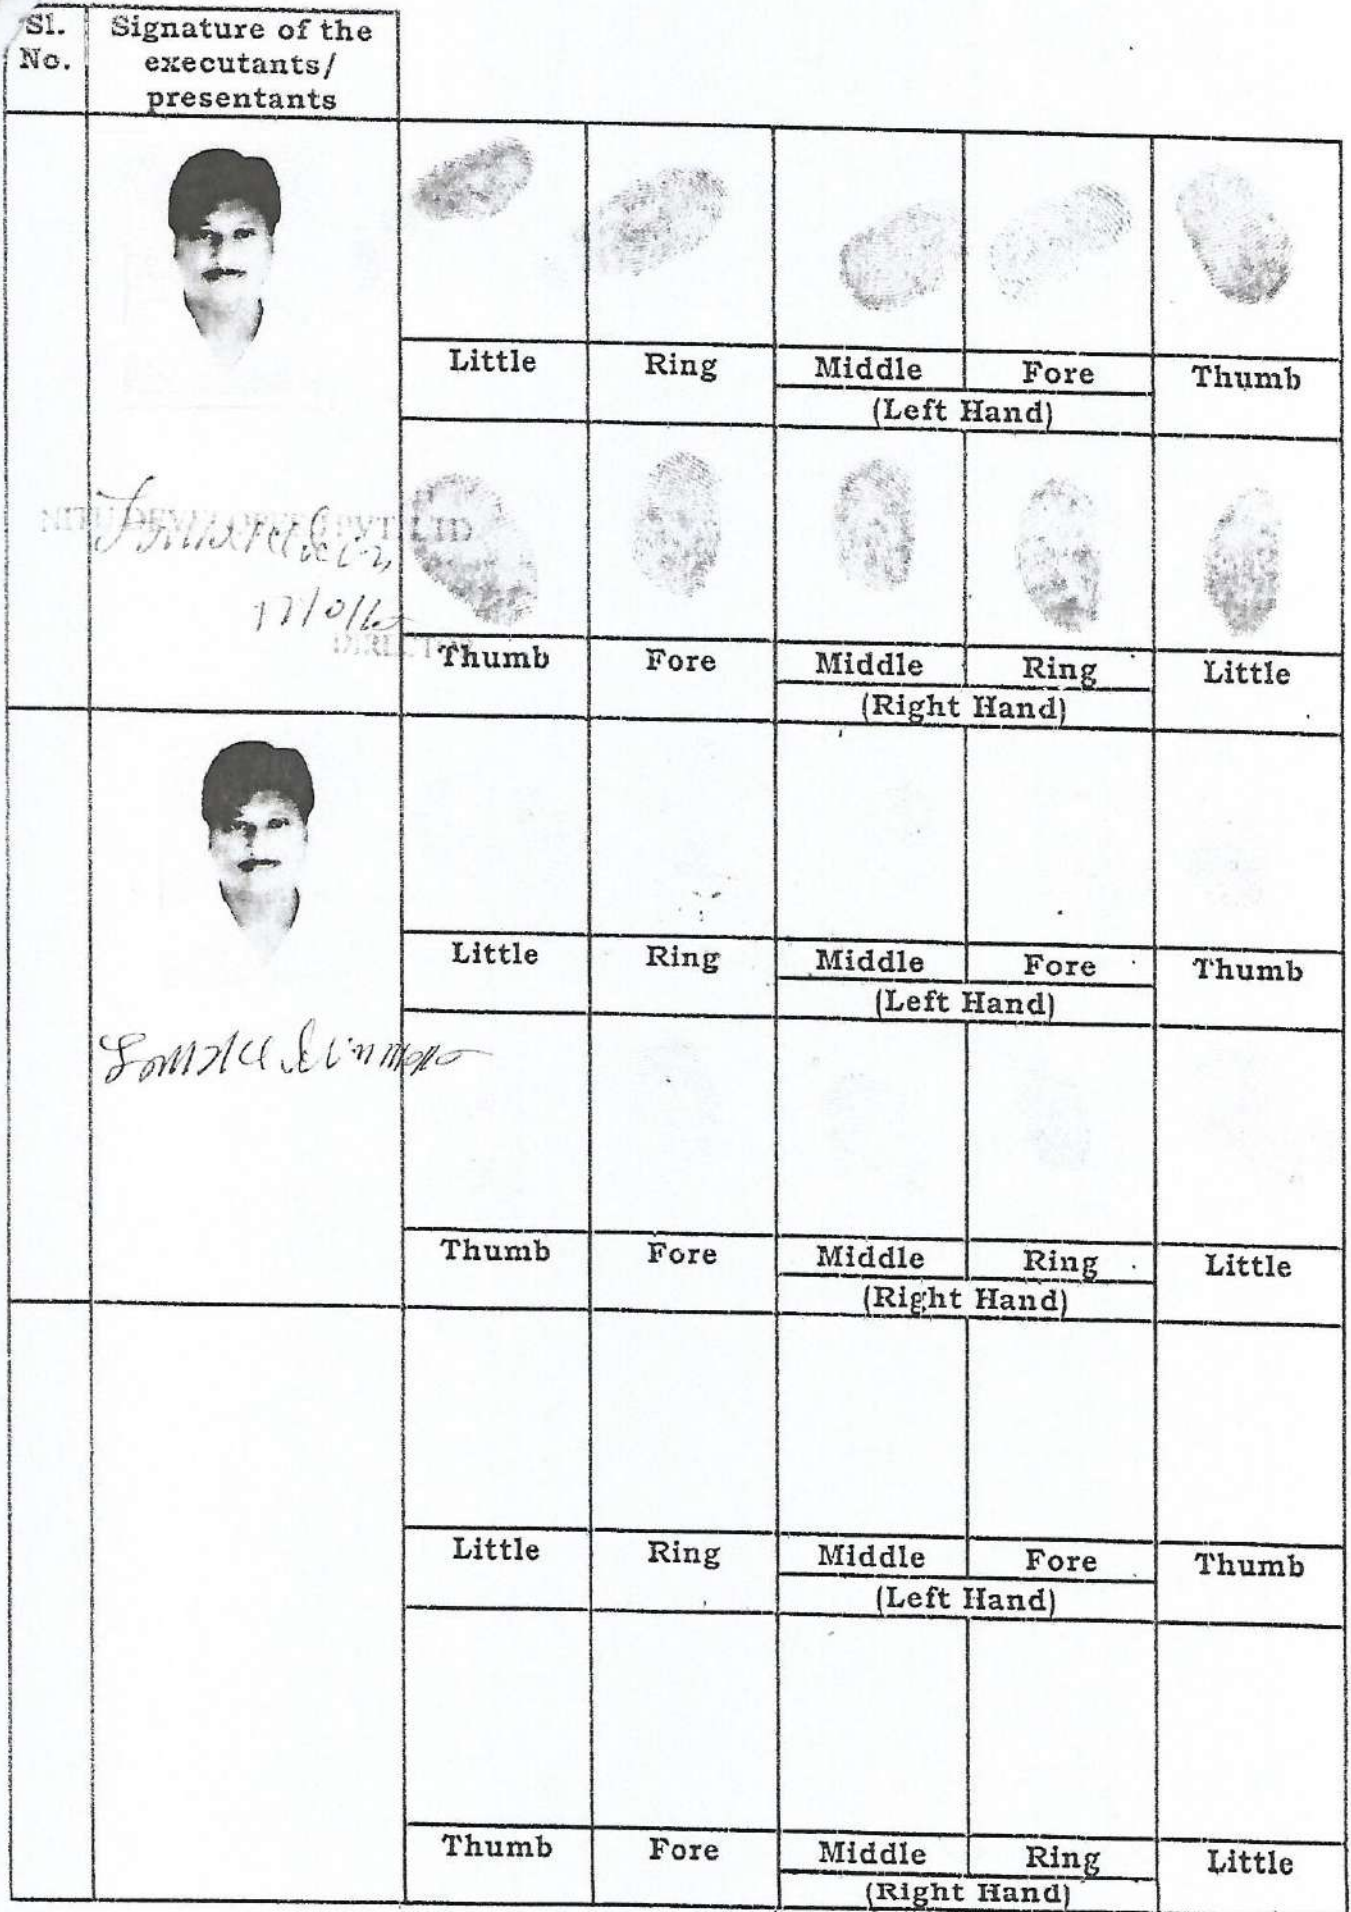 Sl. No.
Signature of the executants/ presentants
Little Ring Middle Fore Thumb
(Left Hand)
PVT LTD
Thumb Fore Middle Ring Little
(Right Hand)
Little Ring Middle Fore Thumb
(Left Hand)
Thumb Fore Middle Ring Little
(Right Hand)
Little Ring Middle Fore Thumb
(Left Hand)
Thumb Fore Middle Ring Little
(Right Hand)